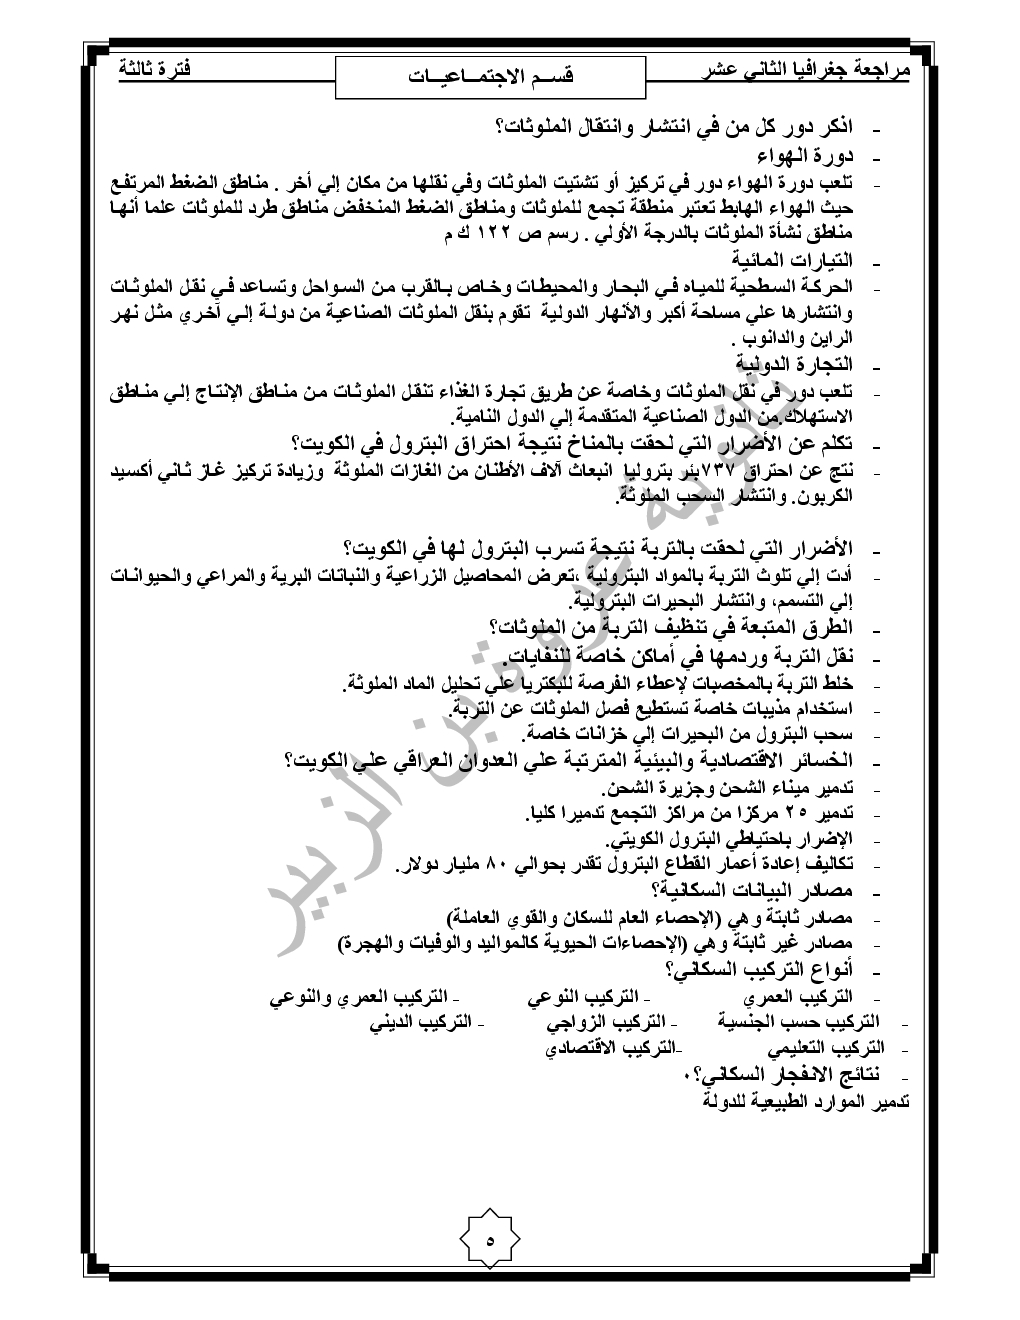 مراجعة جغرافيا الثاني عشر
قســم الاجتمــاعيــات
فترة ثالثة
- اذكر دور كل من في انتشار وانتقال الملوثات؟
- دورة الهواء
- تلعب دورة الهواء دور في تركيز أو تشتيت الملوثات وفي نقلها من مكان إلي أخر . مناطق الضغط المرتفع
حيث الهواء الهابط تعتبر منطقة تجمع للملوثات ومناطق الضغط المنخفض مناطق طرد للملوثات علما أنها
مناطق نشأة الملوثات بالدرجة الأولي . رسم ص ١٢٢ ك م
- التيارات المائية
- الحركة السطحية للمياه في البحار والمحيطات وخاص بالقرب من السواحل وتساعد في نقل الملوثات
وانتشارها علي مساحة أكبر والأنهار الدولية تقوم بنقل الملوثات الصناعية من دولة إلي آخري مثل نهر
الراين والدانوب .
- التجارة الدولية
- تلعب دور في نقل الملوثات وخاصة عن طريق تجارة الغذاء تنقل الملوثات من مناطق الإنتاج إلي مناطق
الاستهلاك.من الدول الصناعية المتقدمة إلي الدول النامية.
- تكلم عن الأضرار التي لحقت بالمناخ نتيجة احتراق البترول في الكويت؟
- نتج عن احتراق ٧٣٧بئر بتروليا انبعاث آلاف الأطنان من الغازات الملوثة وزيادة تركيز غاز ثاني أكسيد
الكربون. وانتشار السحب الملوثة.
- الأضرار التي لحقت بالتربة نتيجة تسرب البترول لها في الكويت؟
- أدت إلي تلوث التربة بالمواد البترولية ،تعرض المحاصيل الزراعية والنباتات البرية والمراعي والحيوانات
إلي التسمم، وانتشار البحيرات البترولية.
- الطرق المتبعة في تنظيف التربة من الملوثات؟
- نقل التربة وردمها في أماكن خاصة للنفايات.
- خلط التربة بالمخصبات لإعطاء الفرصة للبكتريا علي تحليل الماد الملوثة.
- استخدام مذيبات خاصة تستطيع فصل الملوثات عن التربة.
- سحب البترول من البحيرات إلي خزانات خاصة.
- الخسائر الاقتصادية والبيئية المترتبة علي العدوان العراقي علي الكويت؟
- تدمير ميناء الشحن وجزيرة الشحن.
- تدمير ٢٥ مركزا من مراكز التجمع تدميرا كليا.
- الإضرار باحتياطي البترول الكويتي.
- تكاليف إعادة أعمار القطاع البترول تقدر بحوالي ٨٠ مليار دولار.
- مصادر البيانات السكانية؟
- مصادر ثابتة وهي (الإحصاء العام للسكان والقوي العاملة)
- مصادر غير ثابتة وهي (الإحصاءات الحيوية كالمواليد والوفيات والهجرة)
- أنواع التركيب السكاني؟
- التركيب العمري - التركيب النوعي - التركيب العمري والنوعي
- التركيب حسب الجنسية - التركيب الزواجي - التركيب الديني
- التركيب التعليمي -التركيب الاقتصادي
- نتائج الانفجار السكاني؟٠
تدمير الموارد الطبيعية للدولة
ثانوية عروة بن الزبير
٥